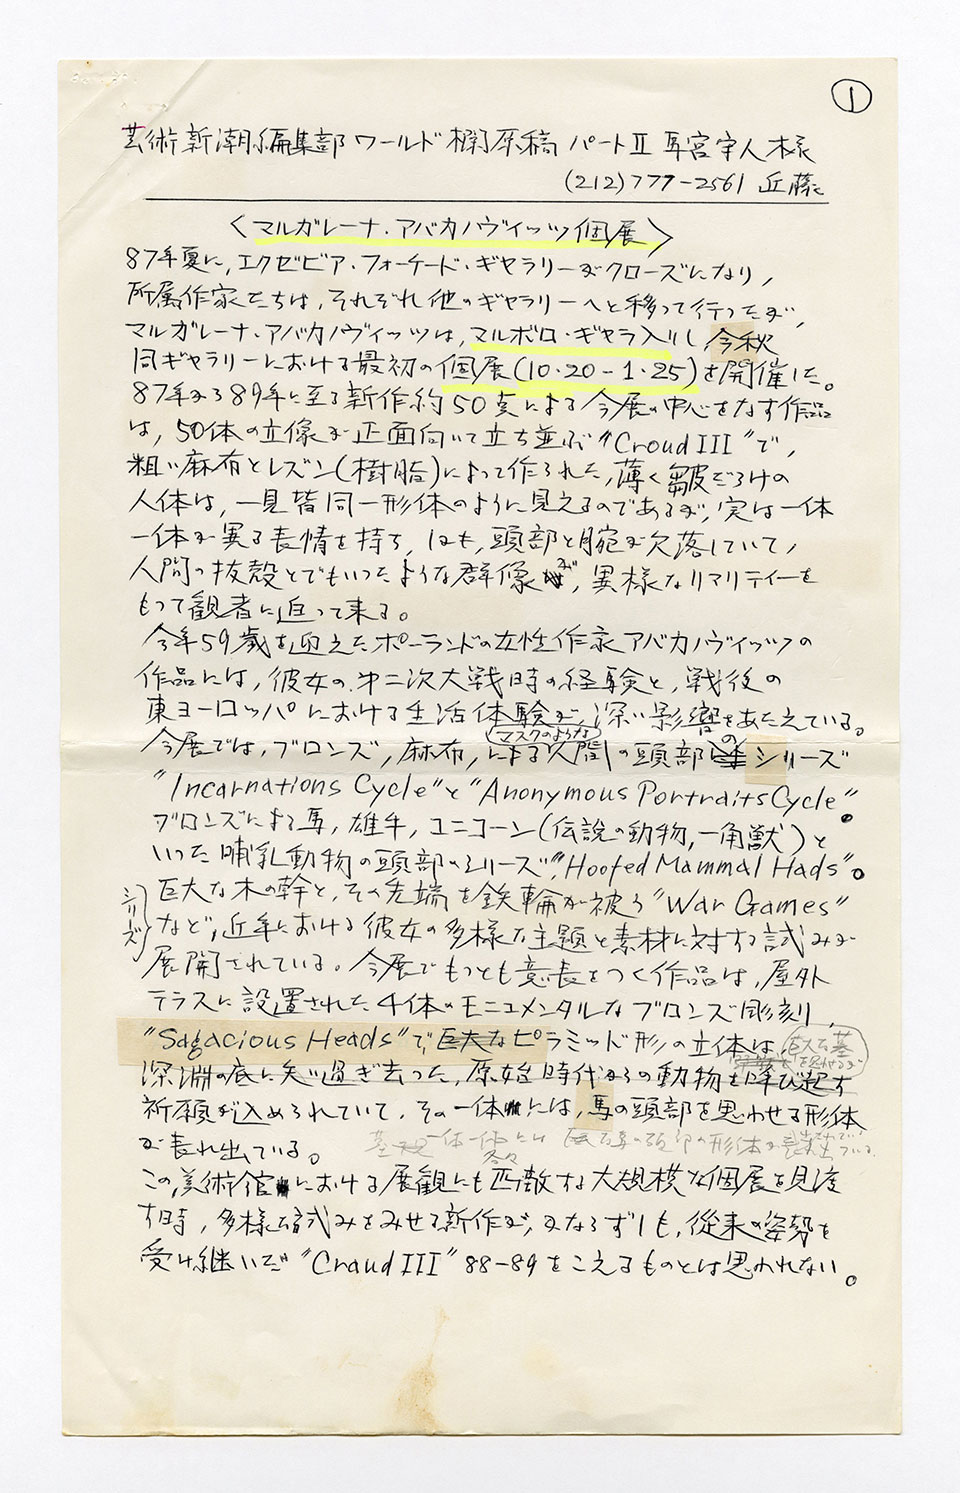 ①
芸術新潮編集部 ワールド欄原稿 パートII 宮宇人様
(212)779-2561 近藤
〈マルガレーナ・アバカノヴィッツ個展〉
87年夏に,エクゼビア・フォーケード・ギャラリーがクローズになり,
所属作家たちは,それぞれ他のギャラリーへと移って行ったが,
マルガレーナ・アバカノヴィッツは,マルボロ・ギャラ入りし 今秋
同ギャラリーにおける最初の個展(10・20-1・25)を開催した。
87年から89年に至る新作約50点による今展の中心をなす作品
は,50体の立像が正面向いて立ち並ぶ"Croud III"で,
粗い麻布とレズン(樹脂)によって作られた,薄く皺だらけの
人体は,一見皆同一形体のように見えるのであるが,実は一体
一体が異る表情を持ち,しかも,頭部と腕が欠落していて,
人間の抜殻とでもいったような群像が,異様なリアリティーを
もって観者に迫って来る。
今年59歳を迎えたポーランドの女性作家アバカノヴィッツの
作品には,彼女の,第二次大戦時の経験と,戦後の
東ヨーロッパにおける生活体験が,深い影響をあたえている。
(マスクのような)
今展では,ブロンズ,麻布,による人間の頭部のシリーズ
"Incarnations Cycle"と"Anonymous Portraits Cycle"。
ブロンズによる馬,雄牛,ユニコーン(伝説の動物,一角獣)と
いった哺乳動物の頭部のシリーズ,"Hoofed Mammal Hads"。
巨大な木の幹と,その先端を鉄輪が被う"War Games"
シリーズ
など,近年における彼女の多様な主題と素材に対する試みが
展開されている。今展でもっとも意表をつく作品は,屋外
テラスに設置された4体のモニュメンタルなブロンズ彫刻,
"Sagacious Heads"で,巨大なピラミッド形の立体は
巨大な墓を思わせるが
深淵の底に矢い過ぎ去った,原始時代からの動物を呼び起す
祈願が込められていて,その一体には,馬の頭部を思わせる形体
が表れ出ている。
一体一体には 馬の頭部の形体が表出でている。
各々
この,美術館における展観にも匹敵する大規模な個展を見渡
す時,多様な試みをみせる新作が,かならずしも,従来の姿勢を
受け継いだ"Craud III"88-89をこえるものとは思われない。